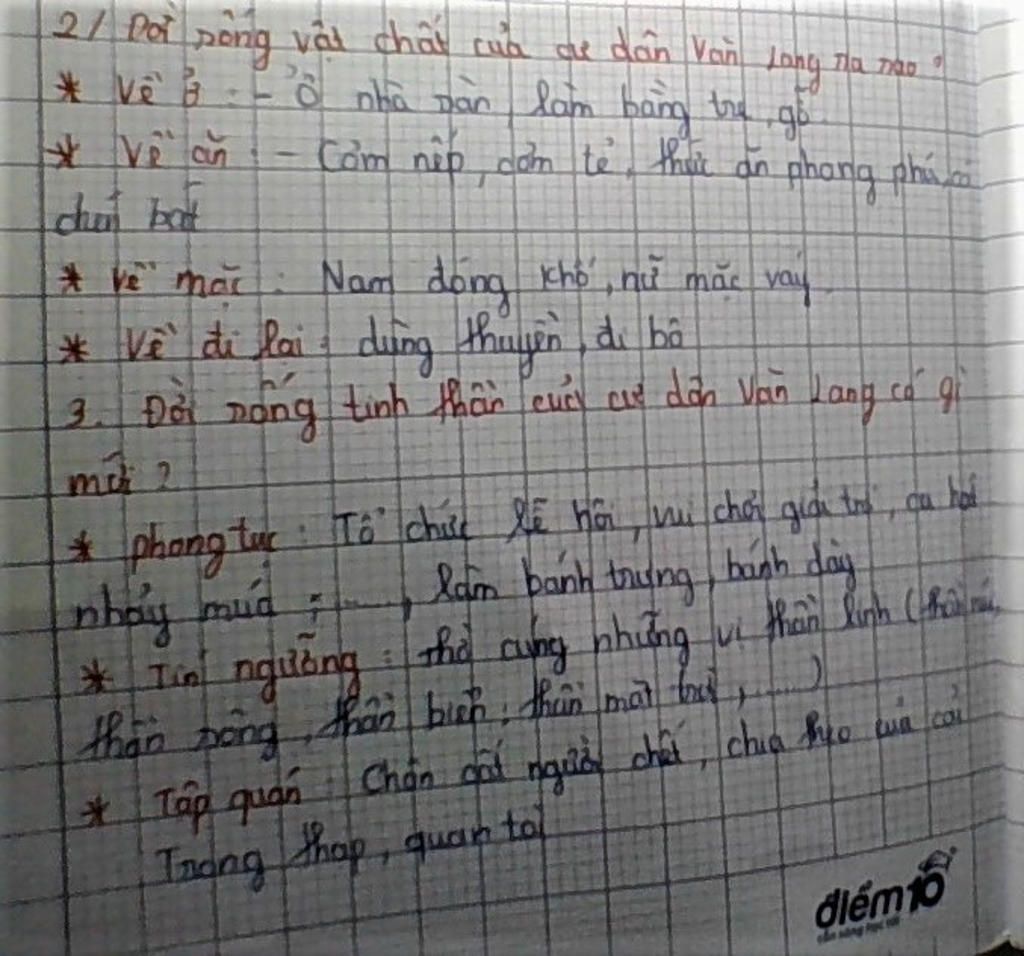 2/ Đời sống vật chất của cư dân Văn Lang ra nào?
* Về ở : - Ở nhà sàn, làm bằng tre, gỗ
* Về ăn : - Cơm nếp, cơm tẻ, thức ăn phong phú, có
chén bát
* Về mặc : Nam đóng khố, nữ mặc váy
* Về đi lại : dùng thuyền, đi bộ
3. Đời sống tinh thần của cư dân Văn Lang có gì
mới ?
* phong tục : Tổ chức lễ hội, vui chơi giải trí, ca hát
nhảy múa ; ...., làm bánh trưng, bánh dày
* Tín ngưỡng : thờ cúng những vị thần linh (thần núi,
thần sông, thần biển, thần mặt trời, .....)
* Tập quán : Chôn cất người chết, chia của cải
Trong thạp, quan tài
điểm10